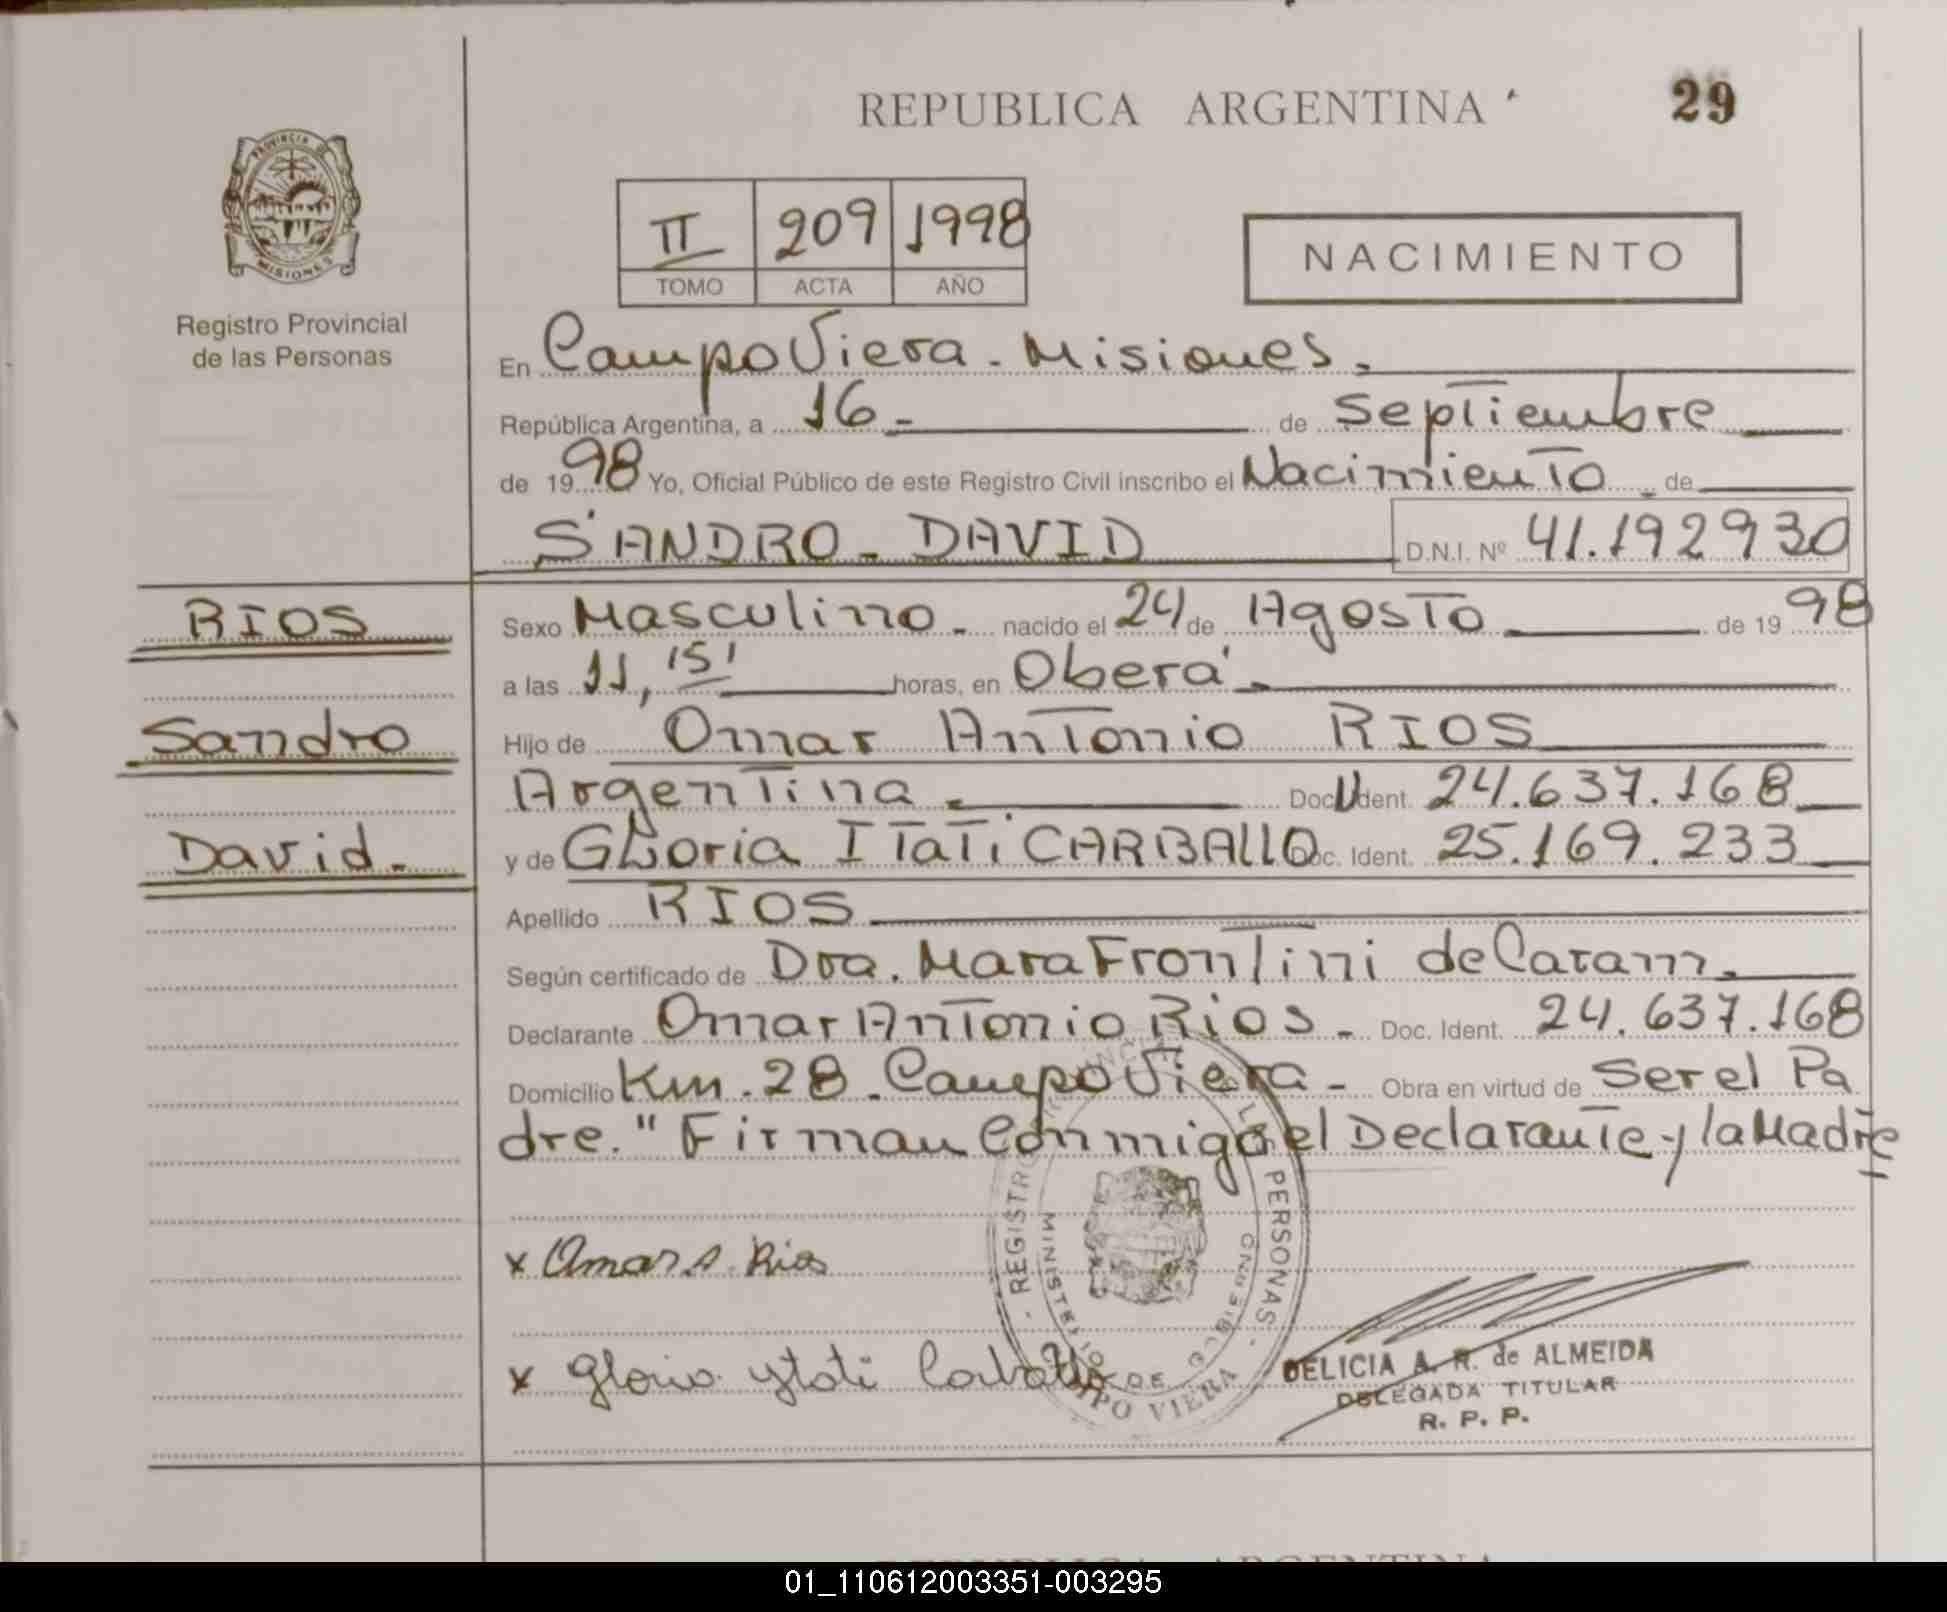 REPUBLICA ARGENTINA
29
PROVINCIA DE
MISIONES
Registro Provincial
de las Personas
II 209 1998
TOMO ACTA AÑO
NACIMIENTO
En Campo Viera - Misiones.
República Argentina, a 16 - de Septiembre
de 19 98 Yo, Oficial Público de este Registro Civil inscribo el Nacimiento de
SANDRO - DAVID D.N.I. Nº 41.192930
RIOS
Sandro
David.-
Sexo Masculino - nacido el 24 de Agosto de 19 98
a las 11,15' horas, en Oberá
Hijo de Omar Antonio RIOS
Argentina. Doc. Ident. 24.637.168
y de GLoria ITaTi CARBALLO Doc. Ident. 25.169.233
Apellido RIOS
Según certificado de Dra. Mara Frontini de Caram.
Declarante Omar Antonio Rios. - Doc. Ident. 24.637.168
Domicilio Km. 28. Campo Viera - Obra en virtud de Ser el Pa
dre." Firman Conmigo el Declarante y la Madre
x Omar A. Rios
x Gloria Ytati Carballo
REGISTRO PROVINCIAL DE LAS PERSONAS
MINISTERIO DE GOBIERNO
CAMPO VIERA
DELICIA A. R. de ALMEIDA
DELEGADA TITULAR
R. P. P.
REPUBLICA ARGENTINA
01_110612003351-003295